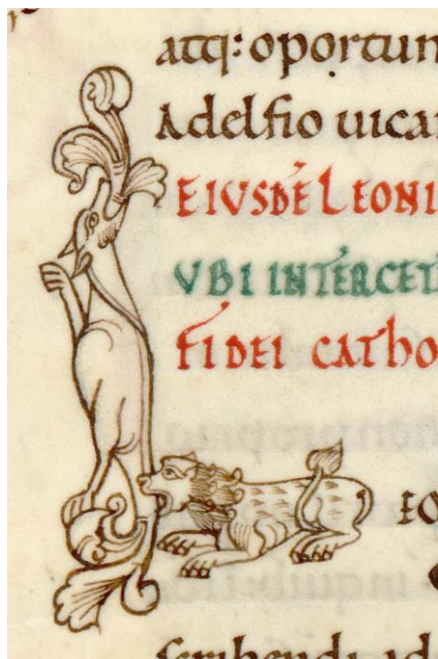 atq: oportun
Adelfio uica
EIVSDĒ LEONI
VBI INTERCET
FIDEI CATHO
EO
inquib
scribendi ad